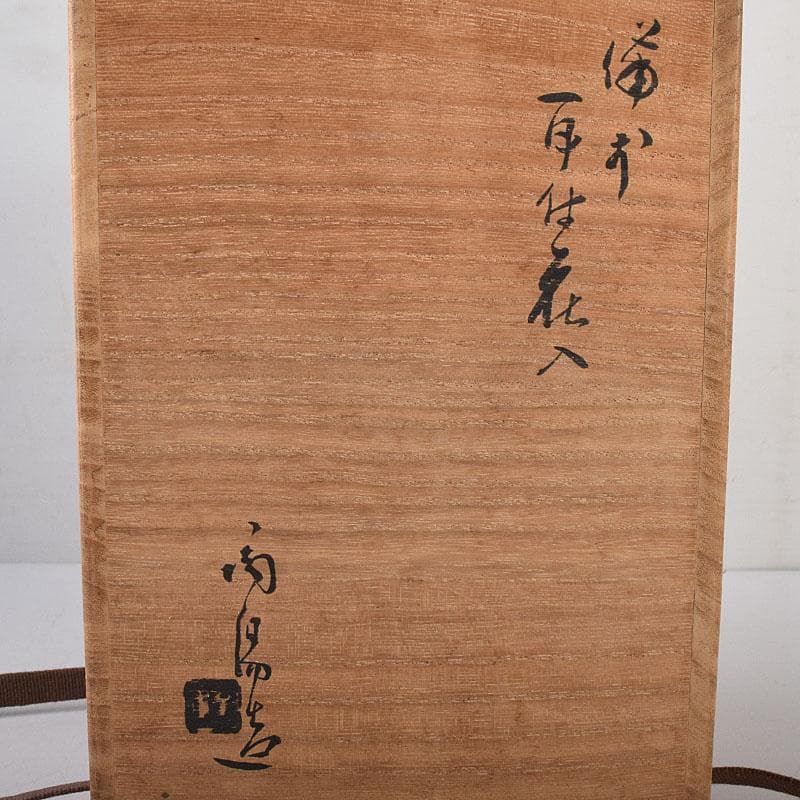 備前
耳付花入
陶陽造